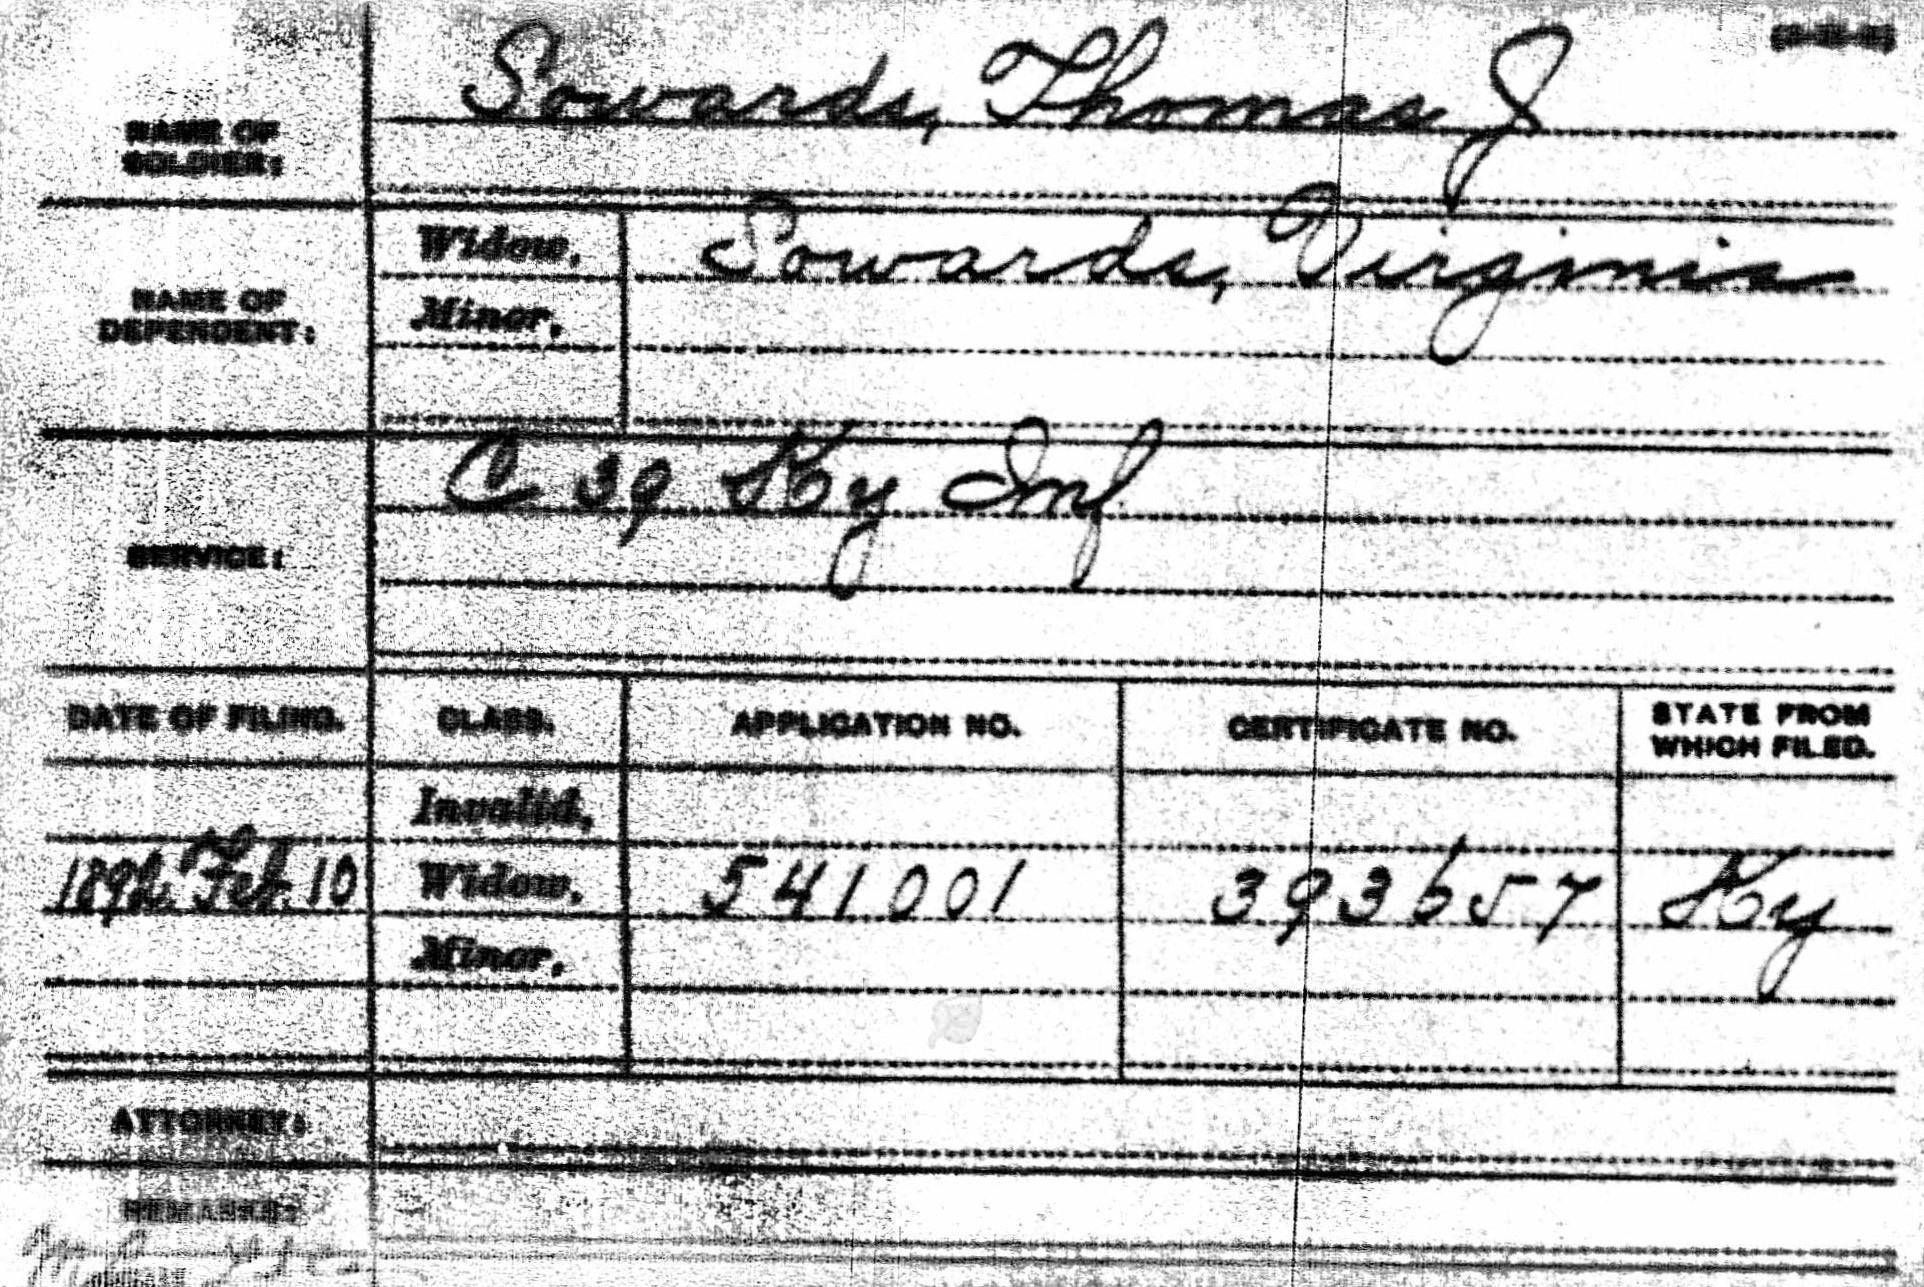 Sowards, Thomas J
NAME OF
SOLDIER:
Widow. Sowards, Virginia
NAME OF
DEPENDENT:
Minor.
C 39 Ky Inf
SERVICE:
DATE OF FILING. CLASS. APPLICATION NO. CERTIFICATE NO. STATE FROM
WHICH FILED.
Invalid,
1892 Feb. 10 Widow. 541001 393657 Ky
Minor.
ATTORNEY:
REMARKS: